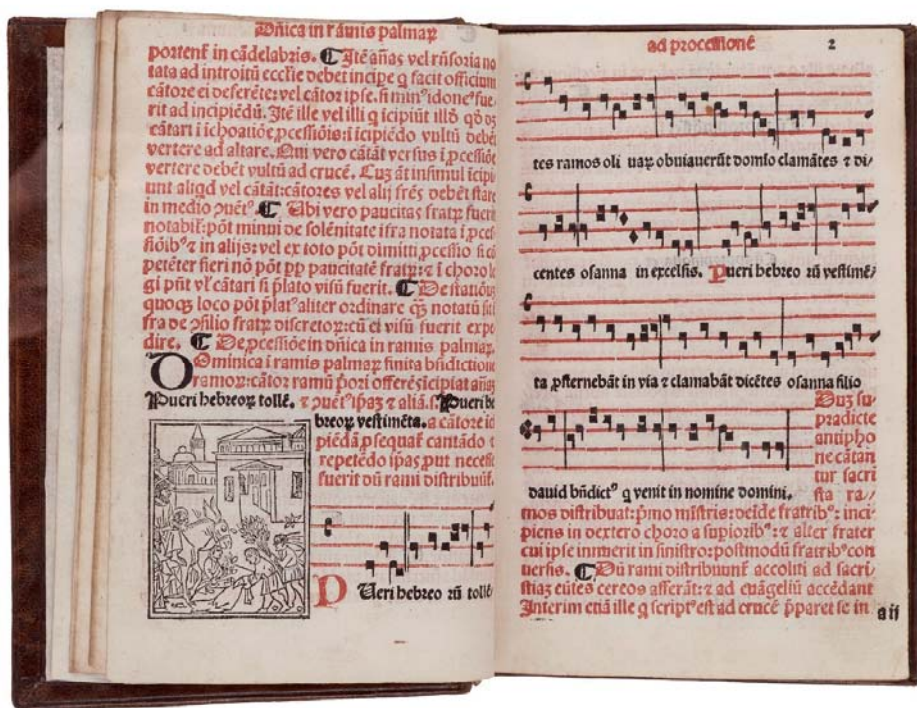 Dñica in ramis palmaꝝ
portent̃ in cãdelabris. ¶ Itẽ añas vel rñsoria no
tata ad introitũ eccl̃ie debet incipe q̃ facit officium
cãtore ei deferẽte: vel cãtor ipse. si min⁹ idone⁹ fue
rit ad incipiẽdũ. Itẽ ille vel illi q̃ icipiũt illd̃ qd̃
cãtari ĩ ichoatiõe ꝓcessiõis: ĩ icipiẽdo vultũ debẽt
vertere ad altare. Qui vero cãtãt versus ĩ ꝓcessiõe
vertere debẽt vultũ ad crucẽ. Cuz ãt insimul icipi
unt aliqd̃ vel cãtãt: cãtores vel alij frẽs debẽt stare
in medio ꝯuẽt⁹. ¶ Ubi vero paucitas fratrꝝ fuerit
notabilˀ: põt minui de solẽnitate ifra notata ĩ ꝓces
siõib⁹ ⁊ in alijs: vel ex toto põt dimitti ꝓcessio si cõ
petẽter fieri nõ põt ꝓp̃ paucitatẽ fratrꝝ: ⁊ ĩ choro
gi pñt vl̃ cãtari si p̃lato visũ fuerit. ¶ De statiõib⁹
quoqꝫ loco põt p̃lat⁹ aliter ordinare qꝫ̃ notatũ
fra de ꝯsilio fratrꝝ discretoꝝ: cũ ei visũ fuerit expe
dire. ¶ De ꝓcessiõe in dñica in ramis palmaꝝ.
Dominica ĩ ramis palmaꝝ finita bñdictione
ramoꝝ: cãtor ramũ p̃ori offerẽs icipiat añaꝫ
Pueri hebreoꝝ tollẽ. ⁊ ꝯuẽt⁹ ip̃aꝫ ⁊ aliã. s. Pueri he
breoꝝ vestimẽta. a cãtore
piẽdã ꝓsequat̃ cantãdo ⁊
repetẽdo ip̃as ꝓut necesse
fuerit dũ rami distribuũt̃.
PUeri hebreo rũ tollẽ
ad processionẽ 2
tes ramos oli uaꝝ obuiauerũt domĩo clamãtes ⁊ di⸗
centes osanna in excelsis. Pueri hebreo rũ vestimẽ⸗
ta ꝓsternebãt in via ⁊ clamabãt dicẽtes osanna filio
Duꝫ su
pradicte
antipho
ne cãtan
tur sacri
sta ra⸗
dauid bñdict⁹ q̃ venit in nomine domini.
mos distribuat: p̃mo mĩstris: deĩde fratrib⁹: inci
piens in dextero choro a supiorib⁹: ⁊ alter frater
cui ipse innuerit in sinistro: postmodũ fratrib⁹ con
uersis. ¶ Dũ rami distribuunt̃ accoliti ad sacri
stiaꝫ eũtes cereos afferãt: ⁊ ad euãgeliũ accẽdant
Interim etiã ille q̃ script⁹ est ad crucẽ p̃paret se in
aij